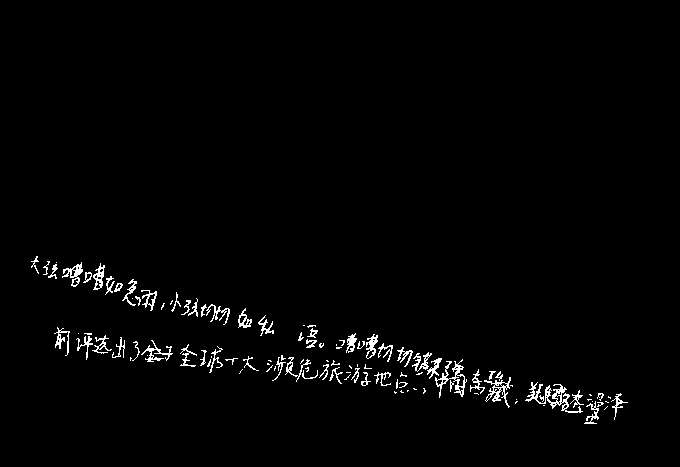 大弦嘈嘈如急雨，小弦切切如私语。嘈嘈切切错杂弹
前评选出了全球十大濒危旅游地点、中国西藏，